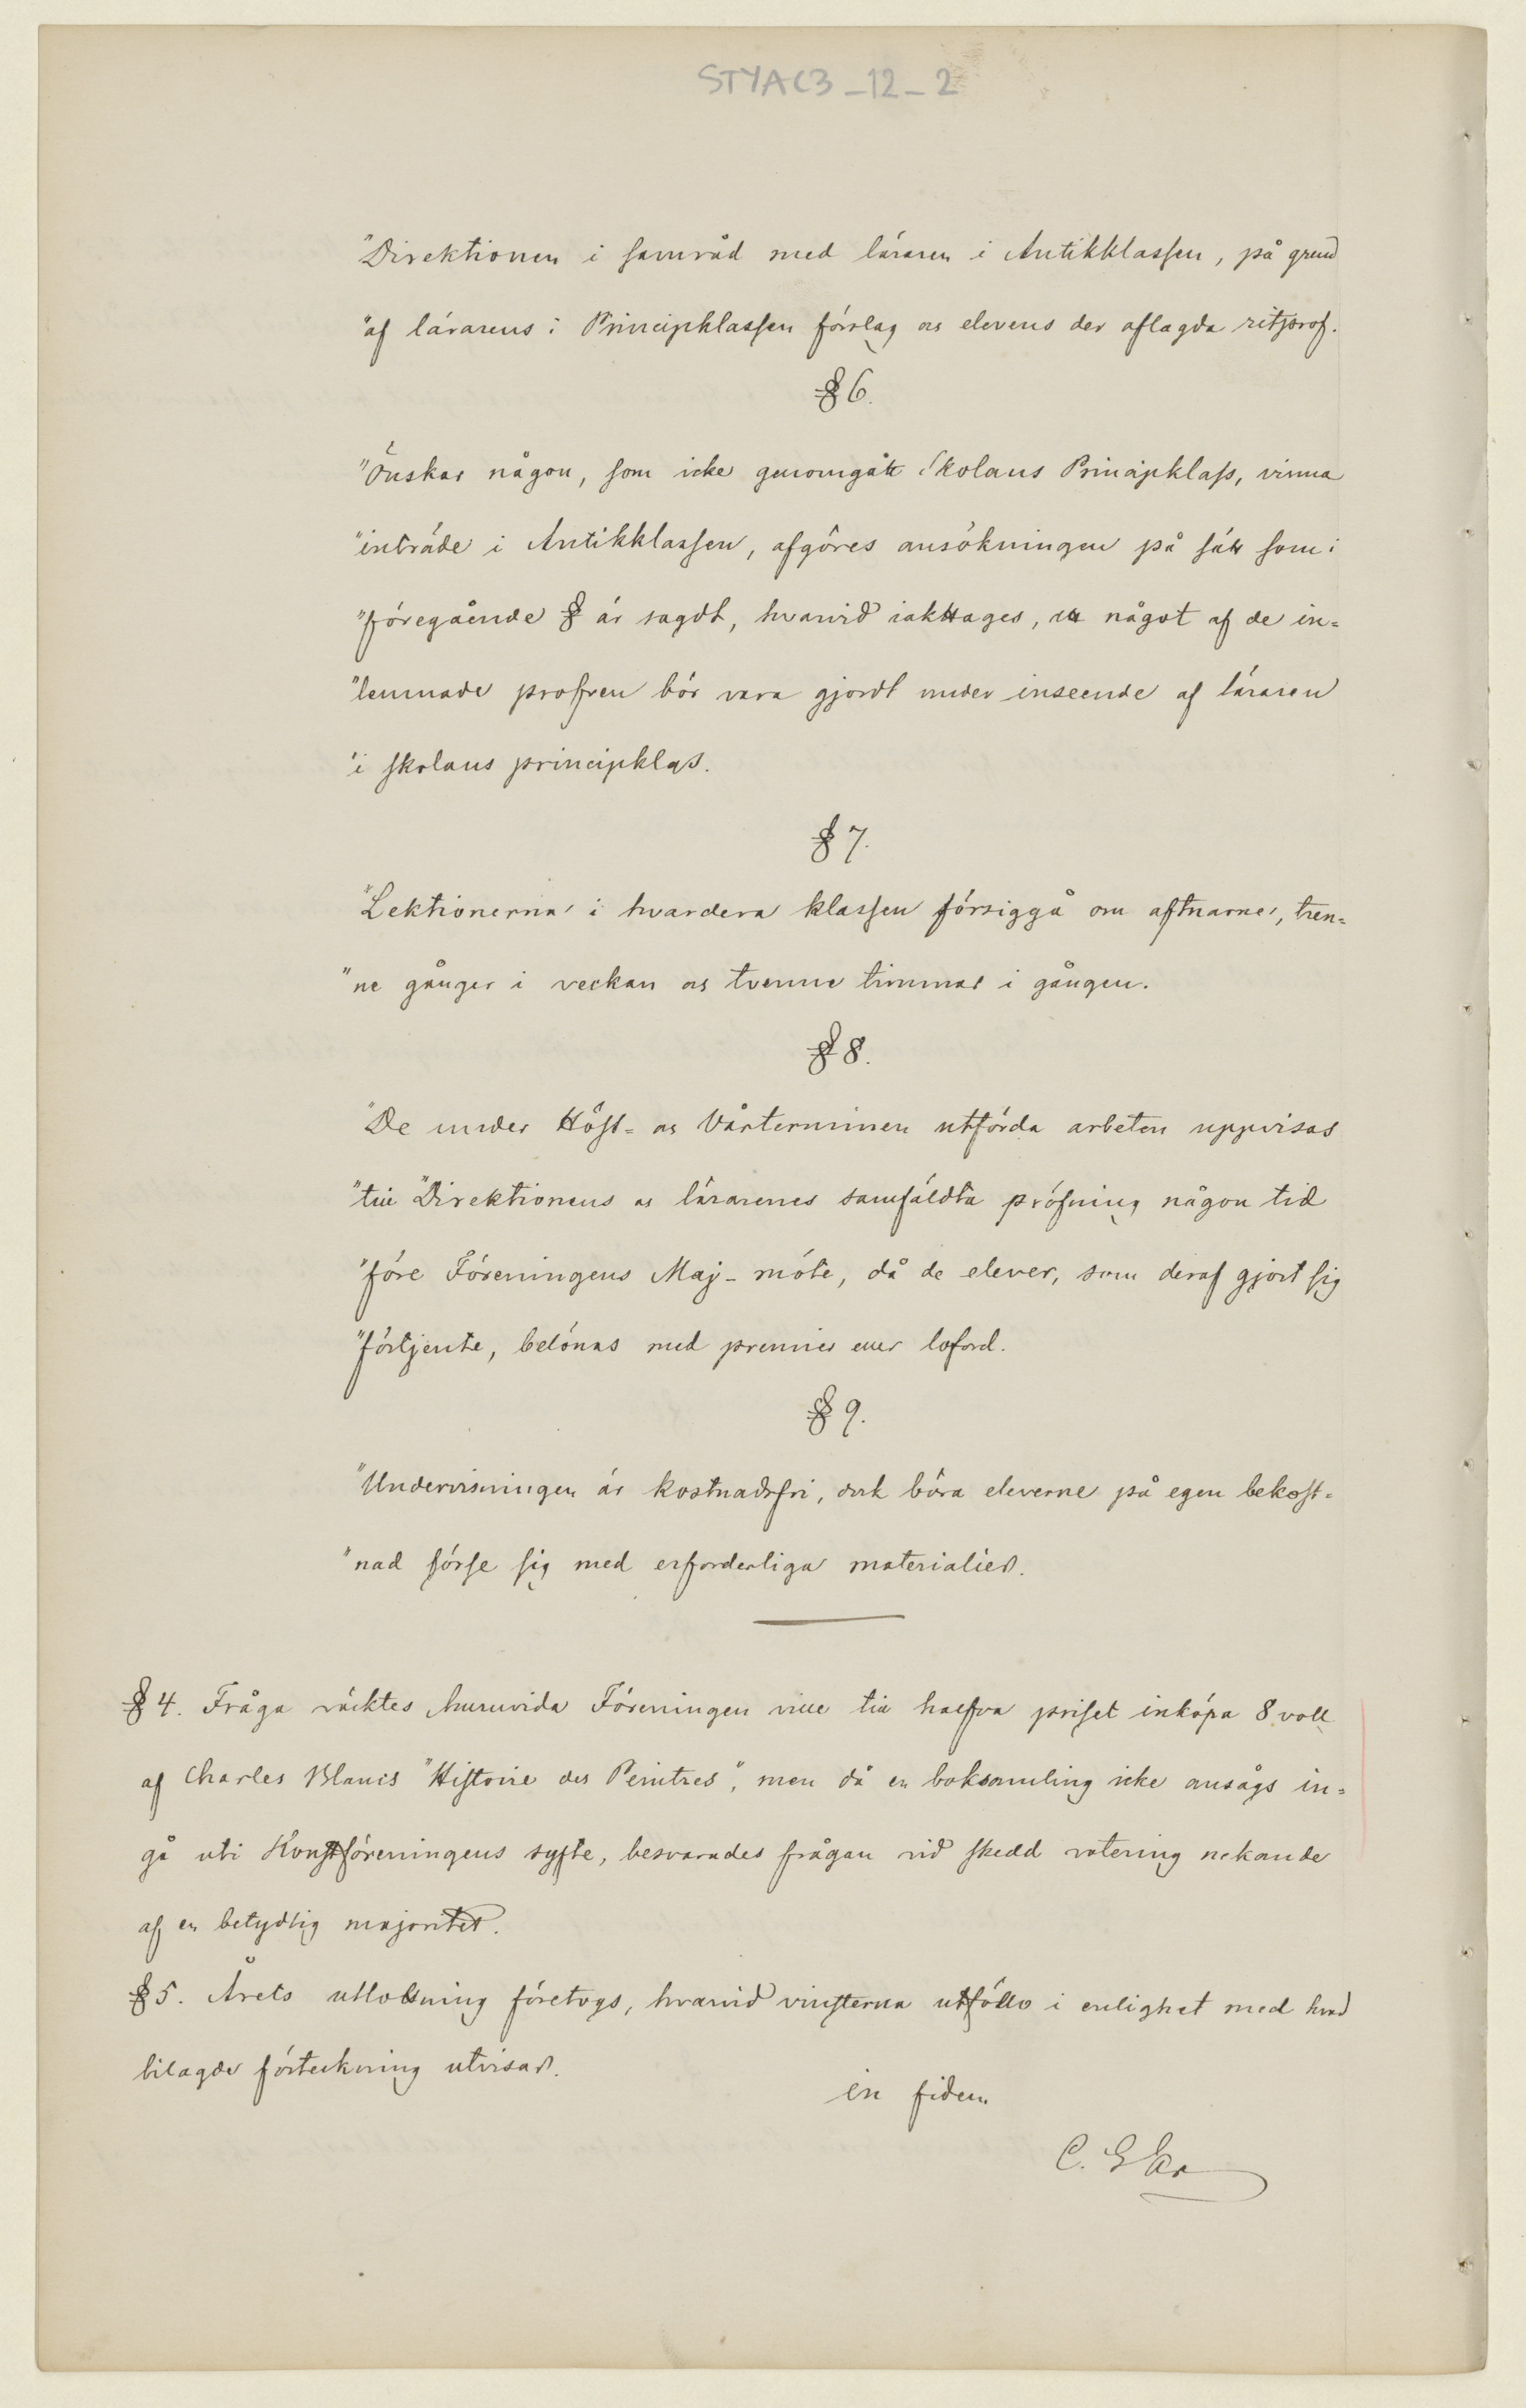 STYAC3_12_2
"Direktionen i samråd med läraren i Antikklassen, på grund
"af lärarens i Principklassen förslag os elevens der aflagda ritprof.
§ 6.
"Önskar någon, som icke genomgått Skolans Principklass, vinna
"inträde i Antikklassen, afgöres ansökningen på sätt som i
"föregående § är sagdt, hvarvid iakttages, att något af de in=
"lemnade profven bör vara gjordt under inseende af läraren
"i skolans principklass.
§ 7.
"Lektionerna i hvardera klassen försiggå om aftnarne, tren=
"ne gånger i veckan os tvenne timmar i gången.
§ 8.
"De under Höst= os Vårterminen utförda arbeten uppvisas
"till Direktionens os lärarenes samfäldta pröfning någon tid
"före Föreningens Maj-möte, då de elever, som deraf gjort sig
"förtjente, belönas med premier eller loford.
§ 9.
"Undervisningen är kostnadsfri, dock böra eleverne på egen bekost=
"nad förse sig med erforderliga materialier.
§ 4. Fråga väcktes huruvida Föreningen ville till halfva priset inköpa 8 voll
af Charles Blancs "Histoire des Peintres", men då en boksamling icke ansågs in=
gå uti Konstföreningens syfte, besvarades frågan vid skedd votering nekande
af en betydlig majoritet.
§ 5. Årets utlottning företogs, hvarvid vinsterna utföllo i enlighet med hvad
bilagde förteckning utvisar.
in fidem
C. Eka